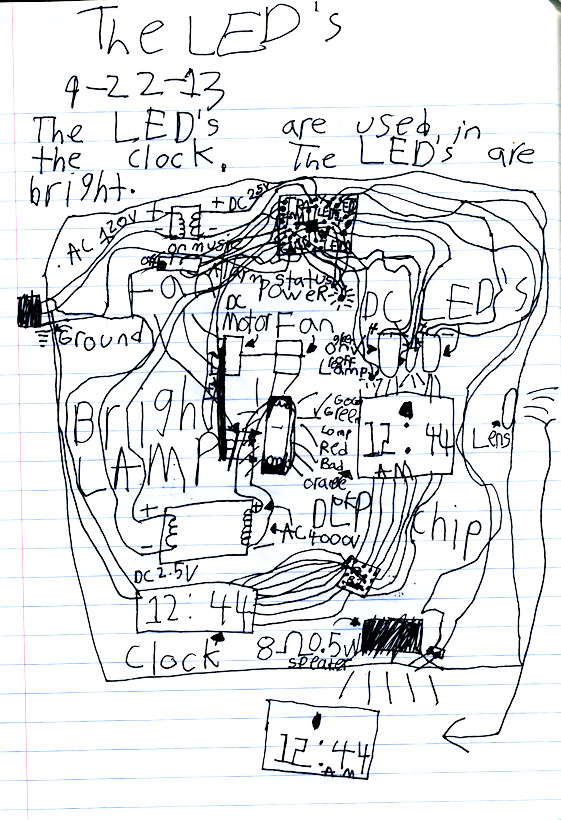 The LED's
9-22-13
The LED's are used in
the clock. The LED's are
bright.
AC 120V + + DC 25V
- -
on music
off
Lamp status
power
Fa
DC LED'S
Ground
DC
Motor Fan
on
off
Lamp
Good
Green
Lamp
Red
Bad
orange
Bright
LAMP
12:44
AM
Lens
DLP
Chip
+ +
- AC -
4000V
DC 2.5V
12:44
Clock
8Ω0.5W
speaker
12:44
AM